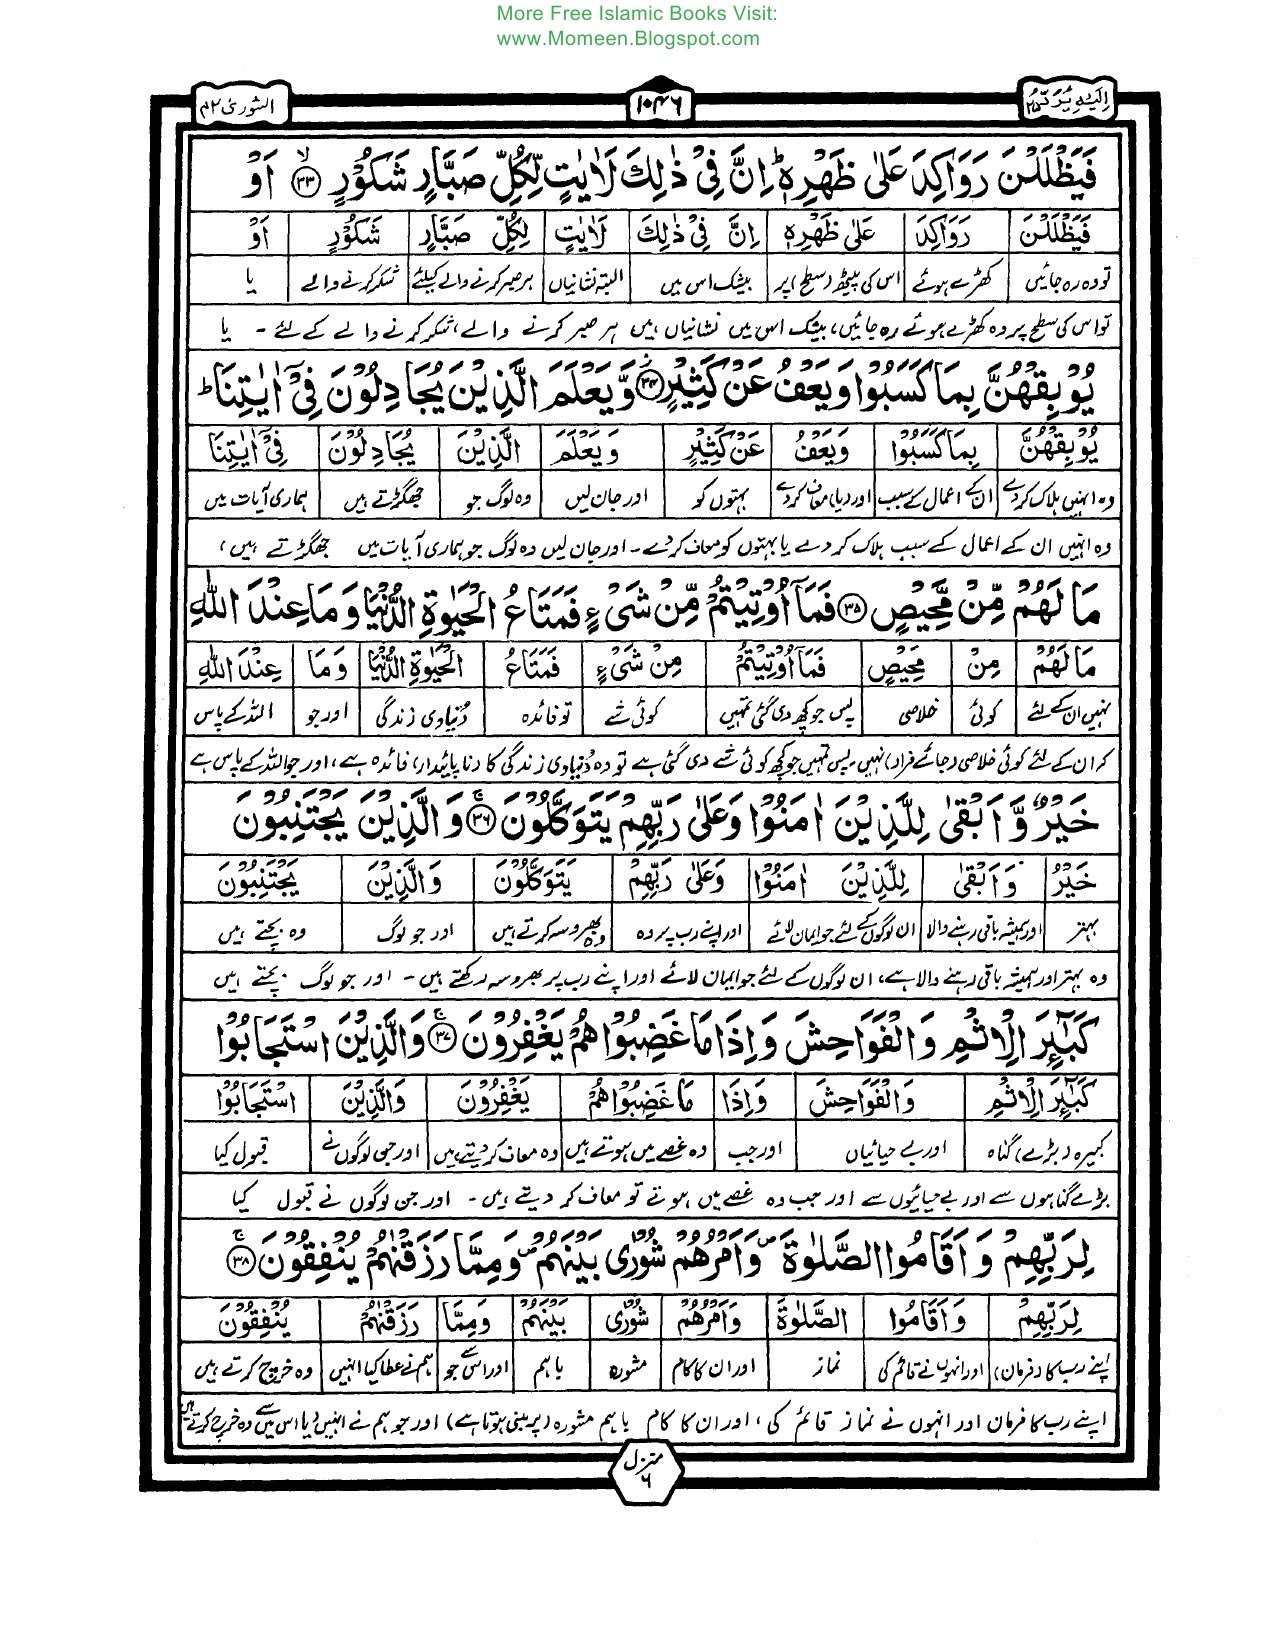 More Free Islamic Books Visit:
www.Momeen.Blogspot.com
اِلَیْهِ یُرَدُّ ۲۵
۱۰۴۶
الشورٰی ۴۲
فَیَظْلَلْنَ رَوَاكِدَ عَلٰى ظَهْرِهٖ ؕ اِنَّ فِیْ ذٰلِكَ لَاٰیٰتٍ لِّكُلِّ صَبَّارٍ شَكُوْرٍ ۙ ۳۳ اَوْ
فَیَظْلَلْنَ رَوَاكِدَ عَلٰى ظَهْرِهٖ اِنَّ فِیْ ذٰلِكَ لَاٰیٰتٍ لِكُلِّ صَبَّارٍ شَكُوْرٍ اَوْ
تو وہ رہ جائیں کھڑے ہوئے اس کی پیٹھ (سطح) پر بیشک اس میں البتہ نشانیاں ہر صبر کرنے والے کیلئے شکر کرنے والے یا
تو اس کی سطح پر وہ کھڑے ہوئے رہ جائیں، بیشک اس میں نشانیاں ہیں ہر صبر کرنے والے، شکر کرنے والے کے لئے - یا
یُوْبِقْهُنَّ بِمَا كَسَبُوْا وَیَعْفُ عَنْ كَثِیْرٍ ۳۴ وَّیَعْلَمَ الَّذِیْنَ یُجَادِلُوْنَ فِیْۤ اٰیٰتِنَا ؕ
یُوْبِقْهُنَّ بِمَا كَسَبُوْا وَیَعْفُ عَنْ كَثِیْرٍ وَیَعْلَمَ الَّذِیْنَ یُجَادِلُوْنَ فِیْۤ اٰیٰتِنَا
وہ انہیں ہلاک کردے ان کے اعمال کے سبب اور (یا) معاف کردے بہتوں کو اور جان لیں وہ لوگ جو جھگڑتے ہیں ہماری آیات میں
وہ انہیں ان کے اعمال کے سبب ہلاک کر دے یا بہتوں کو معاف کردے - اور جان لیں وہ لوگ جو ہماری آیات میں جھگڑتے ہیں،
مَا لَهُمْ مِّنْ مَّحِیْصٍ ۳۵ فَمَاۤ اُوْتِیْتُمْ مِّنْ شَیْءٍ فَمَتَاعُ الْحَیٰوةِ الدُّنْیَا وَمَا عِنْدَ اللّٰهِ
مَا لَهُمْ مِنْ مَحِیْصٍ فَمَاۤ اُوْتِیْتُمْ مِنْ شَیْءٍ فَمَتَاعُ الْحَیٰوةِ الدُّنْیَا وَمَا عِنْدَ اللّٰهِ
نہیں ان کے لئے کوئی خلاصی پس جو کچھ دی گئی تمہیں کوئی شے تو فائدہ دُنیاوی زندگی اور جو اللہ کے پاس
کہ ان کے لئے کوئی خلاصی (جائے فرار) نہیں۔ پس تمہیں جو کچھ کوئی شے دی گئی ہے تو وہ دُنیاوی زندگی کا (ناپائیدار) فائدہ ہے، اور جو اللہ کے پاس ہے
خَیْرٌ وَّاَبْقٰى لِلَّذِیْنَ اٰمَنُوْا وَعَلٰى رَبِّهِمْ یَتَوَكَّلُوْنَ ۚ ۳۶ وَالَّذِیْنَ یَجْتَنِبُوْنَ
خَیْرٌ وَاَبْقٰى لِلَّذِیْنَ اٰمَنُوْا وَعَلٰى رَبِّهِمْ یَتَوَكَّلُوْنَ وَالَّذِیْنَ یَجْتَنِبُوْنَ
بہتر اور ہمیشہ باقی رہنے والا ان لوگوں کے لئے جو ایمان لائے اور اپنے رب پر وہ وہ بھروسہ کرتے ہیں اور جو لوگ وہ بچتے ہیں
وہ بہتر اور ہمیشہ باقی رہنے والا ہے، ان لوگوں کے لئے جو ایمان لائے اور اپنے رب پر بھروسہ رکھتے ہیں - اور جو لوگ بچتے ہیں
كَبٰٓىِٕرَ الْاِثْمِ وَالْفَوَاحِشَ وَاِذَا مَا غَضِبُوْا هُمْ یَغْفِرُوْنَ ۚ ۳۷ وَالَّذِیْنَ اسْتَجَابُوْا
كَبٰٓىِٕرَ الْاِثْمِ وَالْفَوَاحِشَ وَاِذَا مَا غَضِبُوْا هُمْ یَغْفِرُوْنَ وَالَّذِیْنَ اسْتَجَابُوْا
کبیرہ (بڑے) گناہ اور بے حیائیاں اور جب وہ غصے میں ہوتے ہیں وہ معاف کردیتے ہیں اور جن لوگوں نے قبول کیا
بڑے گناہوں سے اور بے حیائیوں سے اور جب وہ غصے میں ہوتے تو معاف کر دیتے ہیں - اور جن لوگوں نے قبول کیا
لِرَبِّهِمْ وَاَقَامُوا الصَّلٰوةَ ۪ وَاَمْرُهُمْ شُوْرٰى بَیْنَهُمْ ۪ وَمِمَّا رَزَقْنٰهُمْ یُنْفِقُوْنَ ۚ ۳۸
لِرَبِّهِمْ وَاَقَامُوا الصَّلٰوةَ وَاَمْرُهُمْ شُوْرٰى بَیْنَهُمْ وَمِمَّا رَزَقْنٰهُمْ یُنْفِقُوْنَ
اپنے رب کا (فرمان) اور انہوں نے قائم کی نماز اور ان کا کام مشورہ باہم اور اس سے جو ہم نے عطا کیا انہیں وہ خرچ کرتے ہیں
اپنے رب کا فرمان اور انہوں نے نماز قائم کی، اور ان کا کام باہم مشورہ (پر مبنی ہوتا ہے) اور جو ہم نے انہیں دیا اس میں سے وہ خرچ کرتے ہیں
منزل ۶